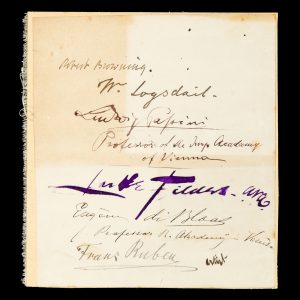 Robert Browning.
Wm. Logsdail.
Ludwig Passini
Professor of the Imp. Academy
of Vienna
Luke Fildes. ARA.
Eugène de Blaas
Professor R. Academy Venice
Franz Ruben